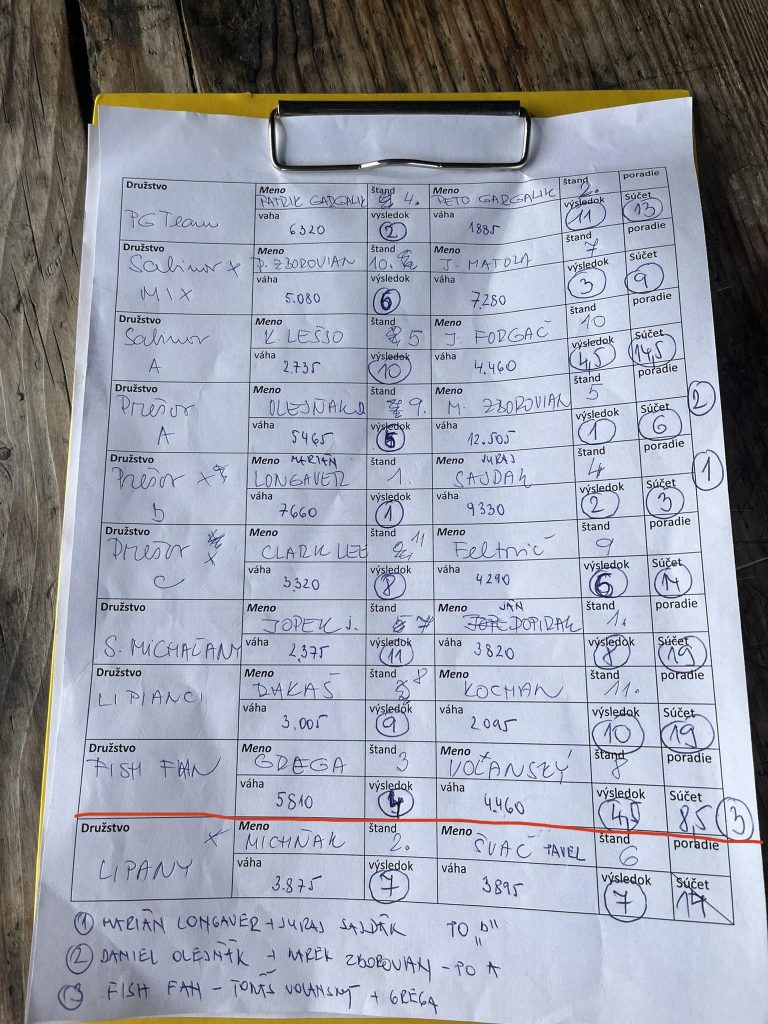 Družstvo Meno štand Meno štand poradie
PATRIK GARGALIK 4. PETO GARGALIK 2.
PG Team váha výsledok váha výsledok Súčet
6320 2 1885 11 13
Družstvo Meno štand Meno štand poradie
Sabinov x P. ZBOROVIAN 10. J. MATOLA 7
MIX váha výsledok váha výsledok Súčet
5.080 6 7.280 3 9
Družstvo Meno štand Meno štand poradie
Sabinov K. LEŠŠO 5 J. FORGAČ 10
A váha výsledok váha výsledok Súčet
2.735 10 4.460 4,5 14,5
Družstvo Meno štand Meno štand poradie
Prešov OLEJŇÁK D 9. M. ZBOROVIAN 5 2
A váha výsledok váha výsledok Súčet
5465 5 12.505 1 6
Družstvo Meno MARIÁN štand Meno JURAJ štand poradie
Prešov x LONGAVER 1. SAJDAK 4 1
b váha výsledok váha výsledok Súčet
7660 1 9330 2 3
Družstvo Meno štand Meno štand poradie
Prešov x CLARK LEE 11 Feltovič 9
C váha výsledok váha výsledok Súčet
3320 8 4290 6 14
Družstvo Meno štand Meno JÁN štand poradie
JOPEK J. 7 DOPIRAK 1.
S. MICHAĽANY váha výsledok váha výsledok Súčet
2.375 11 3820 8 19
Družstvo Meno štand Meno štand poradie
LIPIANCI DAKAŠ 8 KOCHAN 11.
váha výsledok váha výsledok Súčet
3.005 9 2095 10 19
Družstvo Meno štand Meno štand poradie
FISH FAN GREGA 3 VOĽANSKÝ 8
váha výsledok váha výsledok Súčet
5810 4 4.460 4,5 8,5 3
Družstvo Meno štand Meno štand poradie
x MICHŇAK 2. ŠVAČ PAVEL 6
LIPANY váha výsledok váha výsledok Súčet
3.875 7 3895 7 14
1 MARIÁN LONGAVER + JURAJ SAJDÁK TO „B"
2 DANIEL OLEJŇÁK + MAREK ZBOROVIAN - TO A
3 FISH FAN - VOLANSKÝ + GREGA